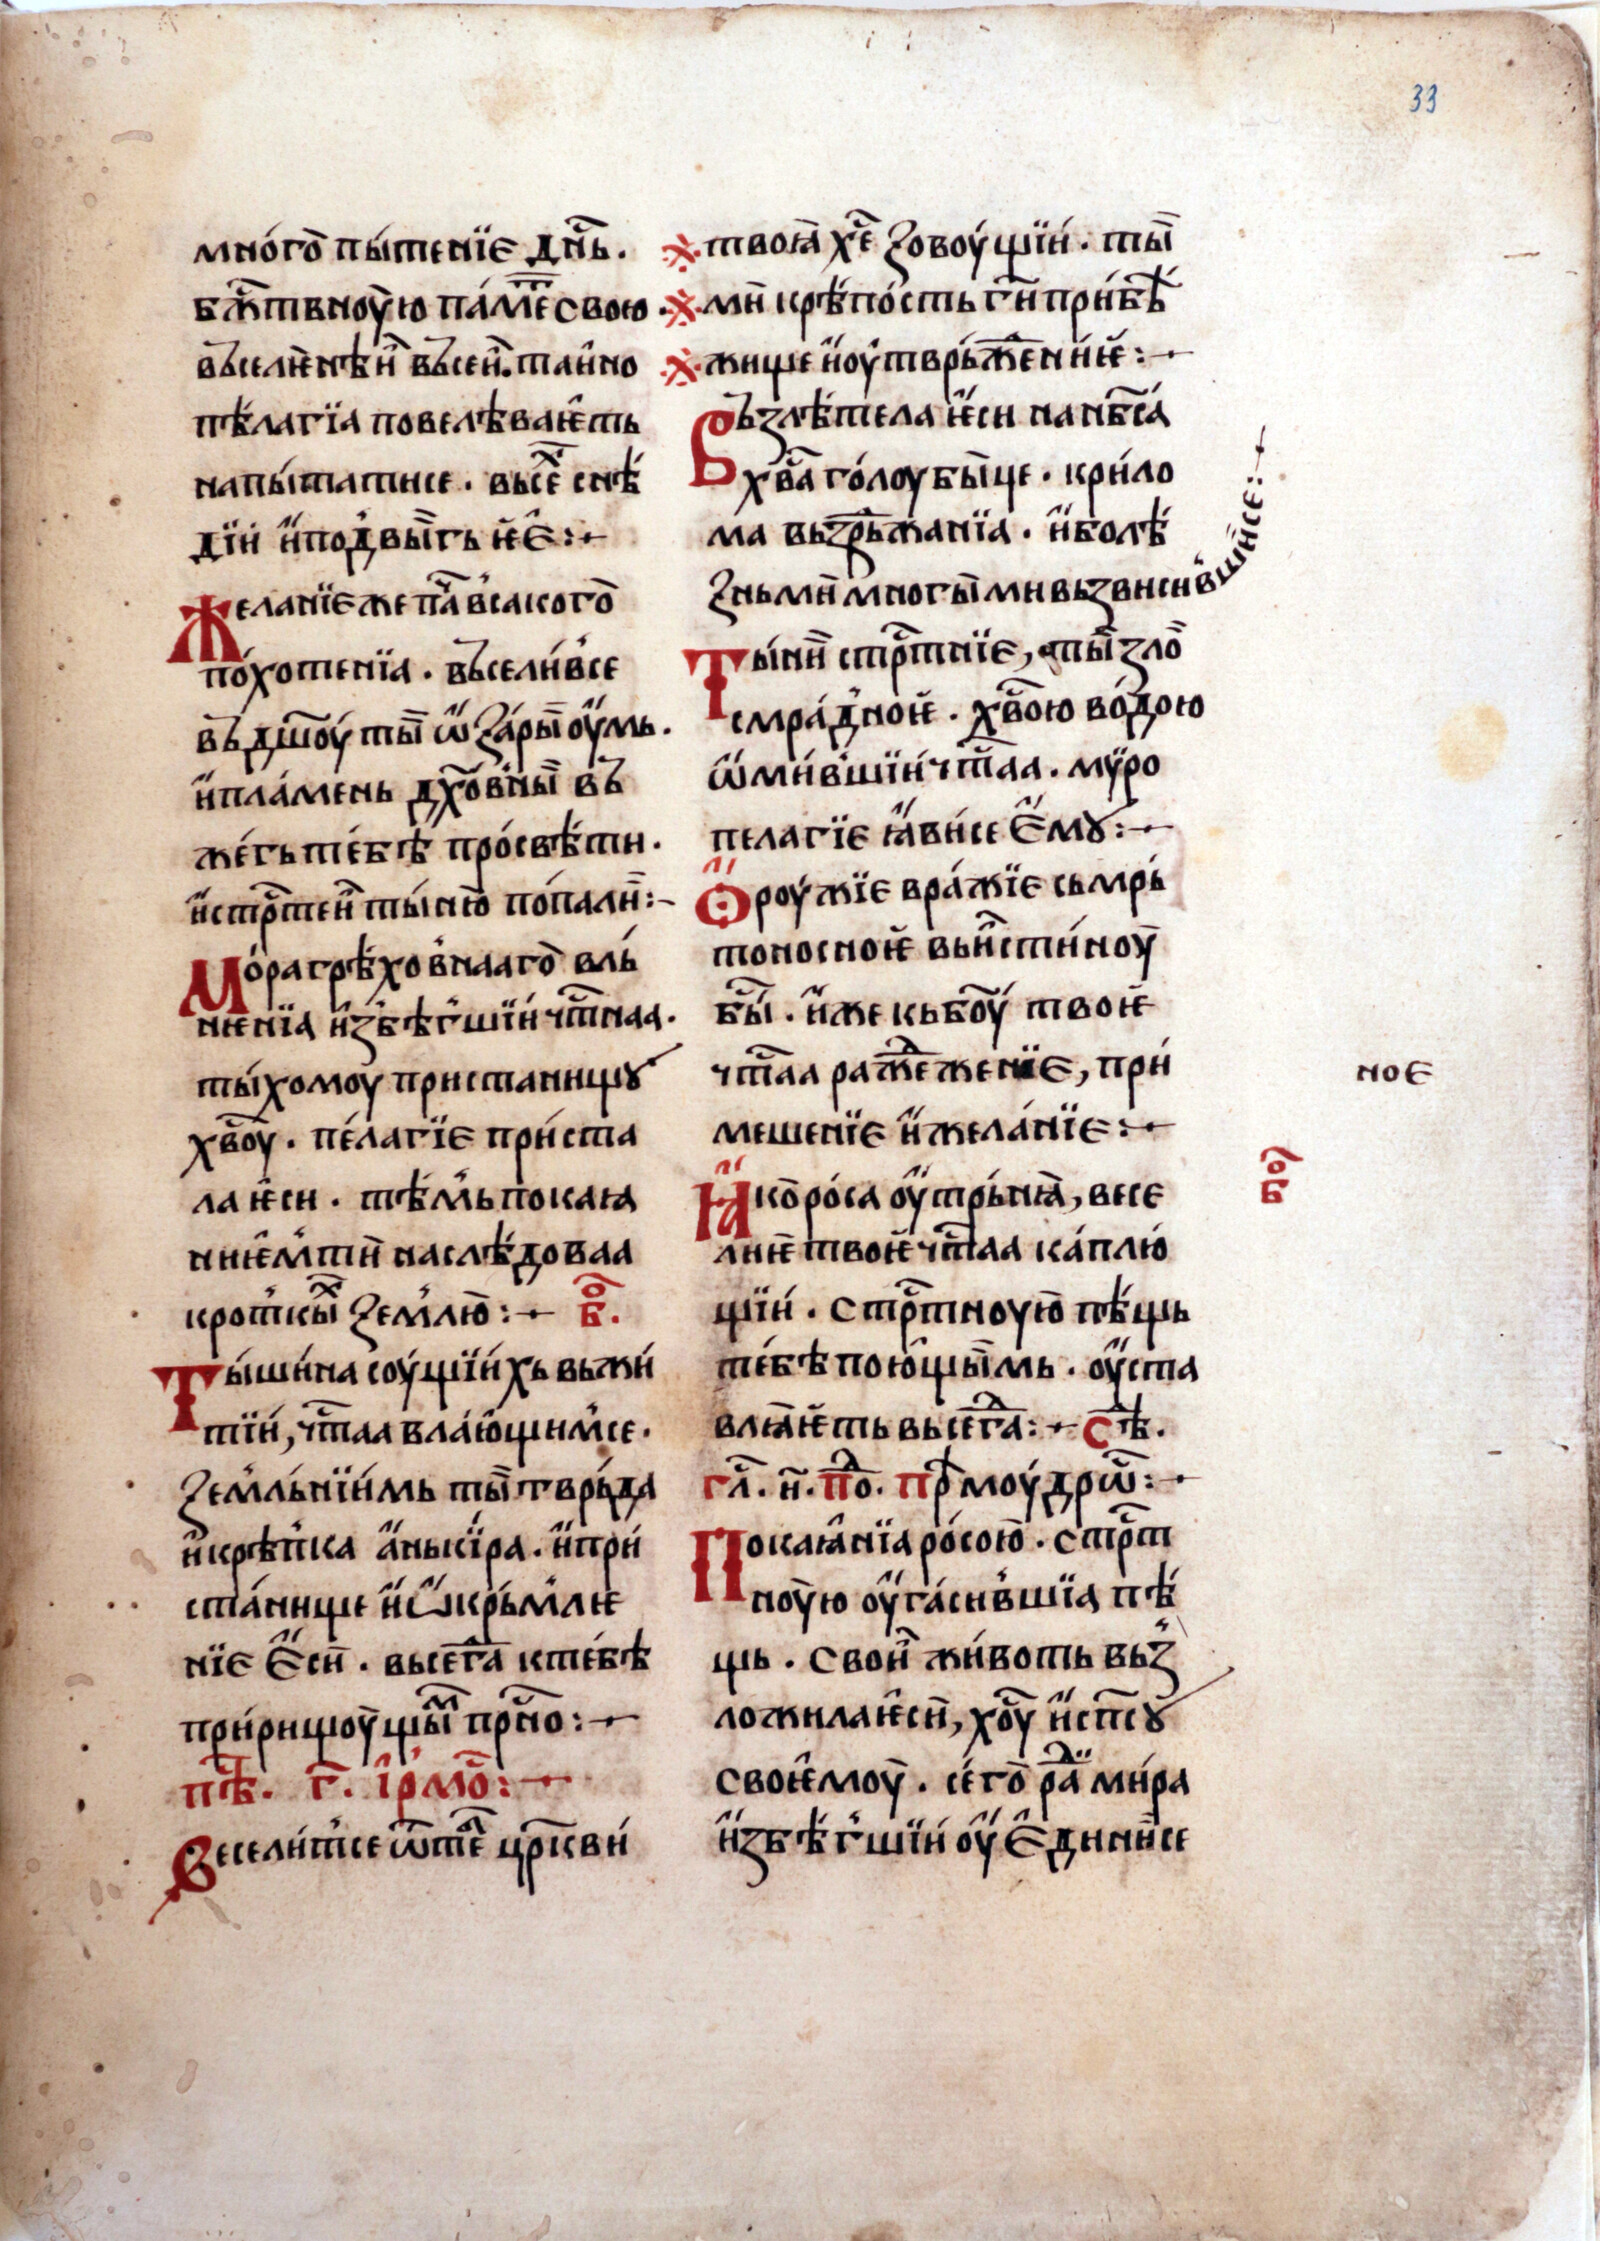 33
мно́го̄ пы́тенїе дн҃ь.
бж҃ⷭтвноую па́мⷮе свою.
въселѥнѣи въсеи. таино
пѣлагїа повелѣваѥть
напы́татисе. въсеⷯ снѣ́
дїи и҆подвы́гь ѥѥ:~
Желанїе же пⷭ҇а в꙽сакого̄
по́хотенїа. въсели́в꙽се
въ дш҃оу ты̏ ѡ҆зары̏ оу҆мь.
и҆пла́мень дх҃ов꙽ны̏ въ
же́гь тебѣ про́свѣти.
и҆стрⷭ҇теи ты́ню̄ по́пали̏:~
Мо́ра грѣхов꙽наго̄ вль́
нѥнїа и҆збѣг꙽шїи чтⷭ҇наа.
ты́хомоу пристанищꙋ
хв҃оу. пе́лагїе при́ста
ла ѥси. тѣм꙽ь покаꙗ
ниѥмⷭ҇тїи наслѣ́доваа
крот꙽кыⷯ зем꙽лю̄:~ бо҃.
Ты́ши́на соу́щїи́хь вьжи́
тїи, чтⷭ҇аа влаю҆щим꙽се.
зем꙽ль́нїи́мь ты̏ тврь́да
и҆крѣп꙽ка а҆нькі́ра. и҆при́
ста́нище и҆ѡ҆крьм꙽лѥ
нїе е҆си̏. вьсегⷣа ктебѣ
при́рищоущыⷨ прⷭ҇но:~
пѣⷭ҇. г҃. і҆рмо̄ⷭ:~
Весели́т꙽се ѡ҆тебⷭ҇ѣ црк҃ви́
твоꙗ х҃е зовоу́щїи. ты̏
ми̏ крѣпо́сть ги҃ при́бѣⷤ
жище и҆оу҆тврь́жⷣени́ѥ:~
Възлѣтела ѥси на нб҃са́
хв҃а го́лоубы̏це. кри́ло
ма въздрь́жанїа. и҆болѣ́
зньми̏ многы̏ми вьзвисив꙽ши́се:~
Ты́ни̏ стрⷭ҇тнїе, ты̏ зло̏
смра́д꙽ноѥ. хв҃ою во́дою
ѡ҆ми́в꙽шїи чтⷭ҇аа. мѵро
пелагїе ꙗ҆ви́се е҆мꙋ:~
Ѻроу́жїе вра́жїе сьмрь́
тоносноѥ вьи҆сти́ноу̏
бы́ⷭ. и҆же кьбо҃у́ твоѥ
чтⷭ҇аа ражⷣежеⷩ҇їе, при́
мешенїе и҆жела́нїе:~
Ꙗ҆ко̄ ро́са оу҆трь́нꙗ, весе
лиѥ твоѥ чтⷭ҇аа ка́плю́
щїи. стрⷭ҇тноую̄ пѣ́щь
те́бѣ пою҆щы̏мь. оу҆ста
влꙗѥть вьсегⷣа:~ сѣⷣ.
глⷭ҇. и҃. пⷣо. прⷨмоу́дрѡⷭ:~
Покаꙗ҆нїа ро́сою̄. стрⷭ҇т
ноу̏ю оу҆га́сив꙽шїа пѣ́
щь. свои̏ жи́воть вьз꙽
ложила ѥси̏, хо҃у и҆сп҃сꙋ
своѥмоу̏. се́го̄ раⷣ ми́ра
и҆збѣг꙽шїи оу҆е҆дини̏се
ное
бого